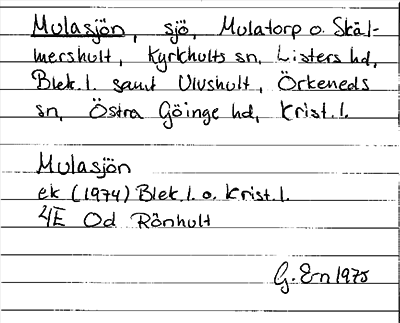 Mulasjön, sjö, Mulatorp o. Skäl-
mershult, Kyrkhults sn, Listers hd,
Blek. l. samt Ulvshult, Örkeneds
sn, Östra Göinge hd, Krist. l.
Mulasjön
ek (1974) Blek. l. o. Krist. l.
4E Od Rönhult
G. En 1975